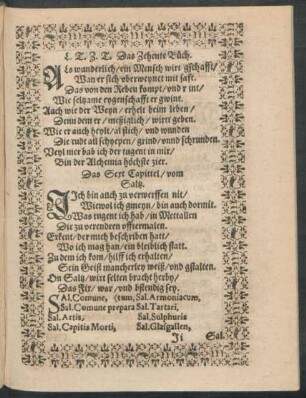 L. T. Z. T. Das Zehente Büch.
ALs wunderlich/ ein Mensch wirt gschafft/
Wan er sich uberweynet mit safft.
Das von den Reben kompt/ und rint/
Wie selzame eygenschafft er gwint.
Auch wie der Weyn/ erhelt dein leben/
Denn dem er/ messiglich/ wirt geben.
Wie er auch heylt/ al siech/ und wunden
Die rudt all schrepen/ grind/ unnd schrunden.
Weyl mer hab ich der tugent in mir/
Bin der Alchemia höchste zier.
Das Sext Capittel/ vom
Saltz.
JCh bin auch zu verwerffen nit/
Wiewol ich gmeyn/ bin auch darmit.
Was tugent ich hab/ in Mettallen
Die zu verenderen offtermalen.
Erkent/ der mich beschriben hatt/
Wo ich mag han/ ein bleiblich statt.
Zu dem ich kom/ hilff ich erhalten/
Sein Geist mancherley weiß/ und gstalten.
On Saltz/ wirt selten bracht herby/
Das Fix/ war/ und bstendig sey.
SAl. Comune, (tum, Sal. Armoniacum,
Sal. Comune prepara Sal. Tartari,
Sal. Artis, Sal. Sulphuris
Sal. Capitis Morti, Sal. Glasgallen,
Ii Sal.